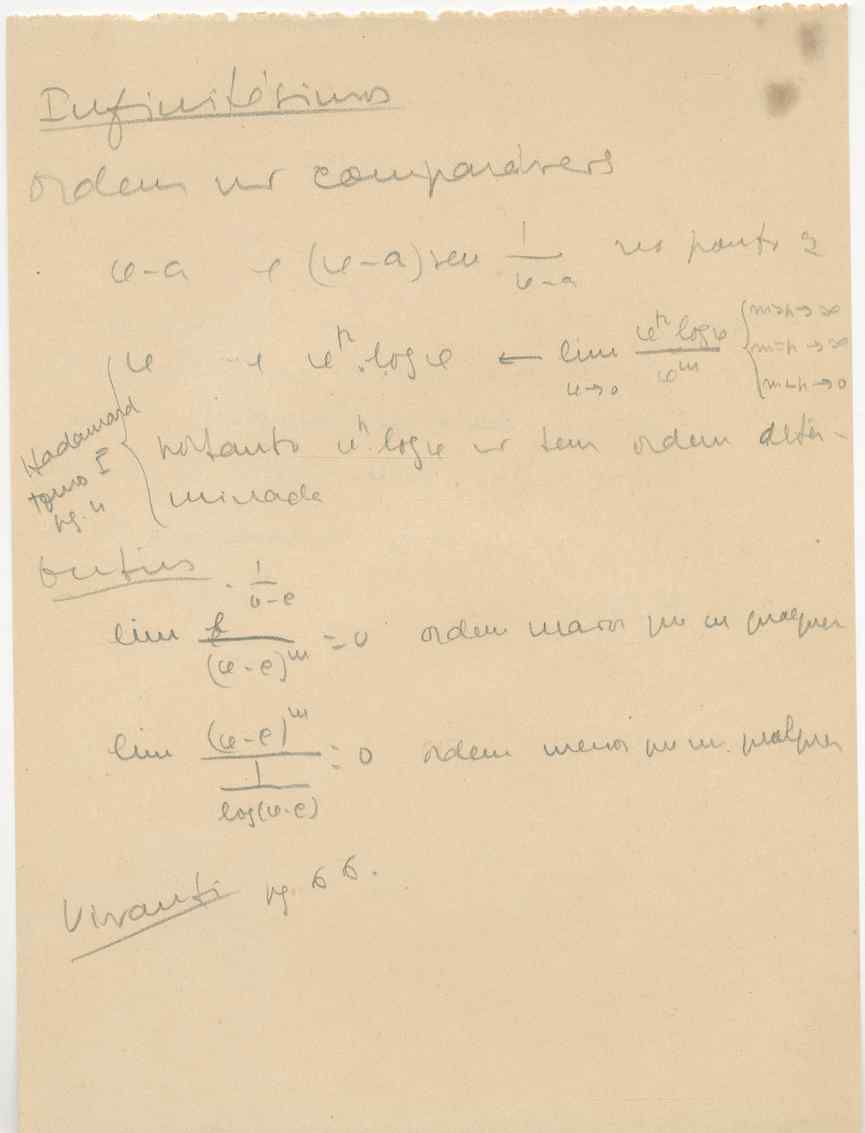 Infinitésimos
ordem ñ comparáveis
x-a e (x-a) sen 1/(x-a) no ponto a
x e x^n . log x ← lim x→0 (x^n log x)/(x^m) { m>n → ∞
m=n → ∞
m<n → 0
Hadamard
tomo I
pg. 4
portanto x^n . log x ñ tem ordem deter-
minada
Outros
lim e^(-1/(x-c))/(x-c)^m = 0 ordem maior que m qualquer
lim (x-c)^m/(1/log(x-c)) = 0 ordem menor que m qualquer
Vivanti pg. 66.